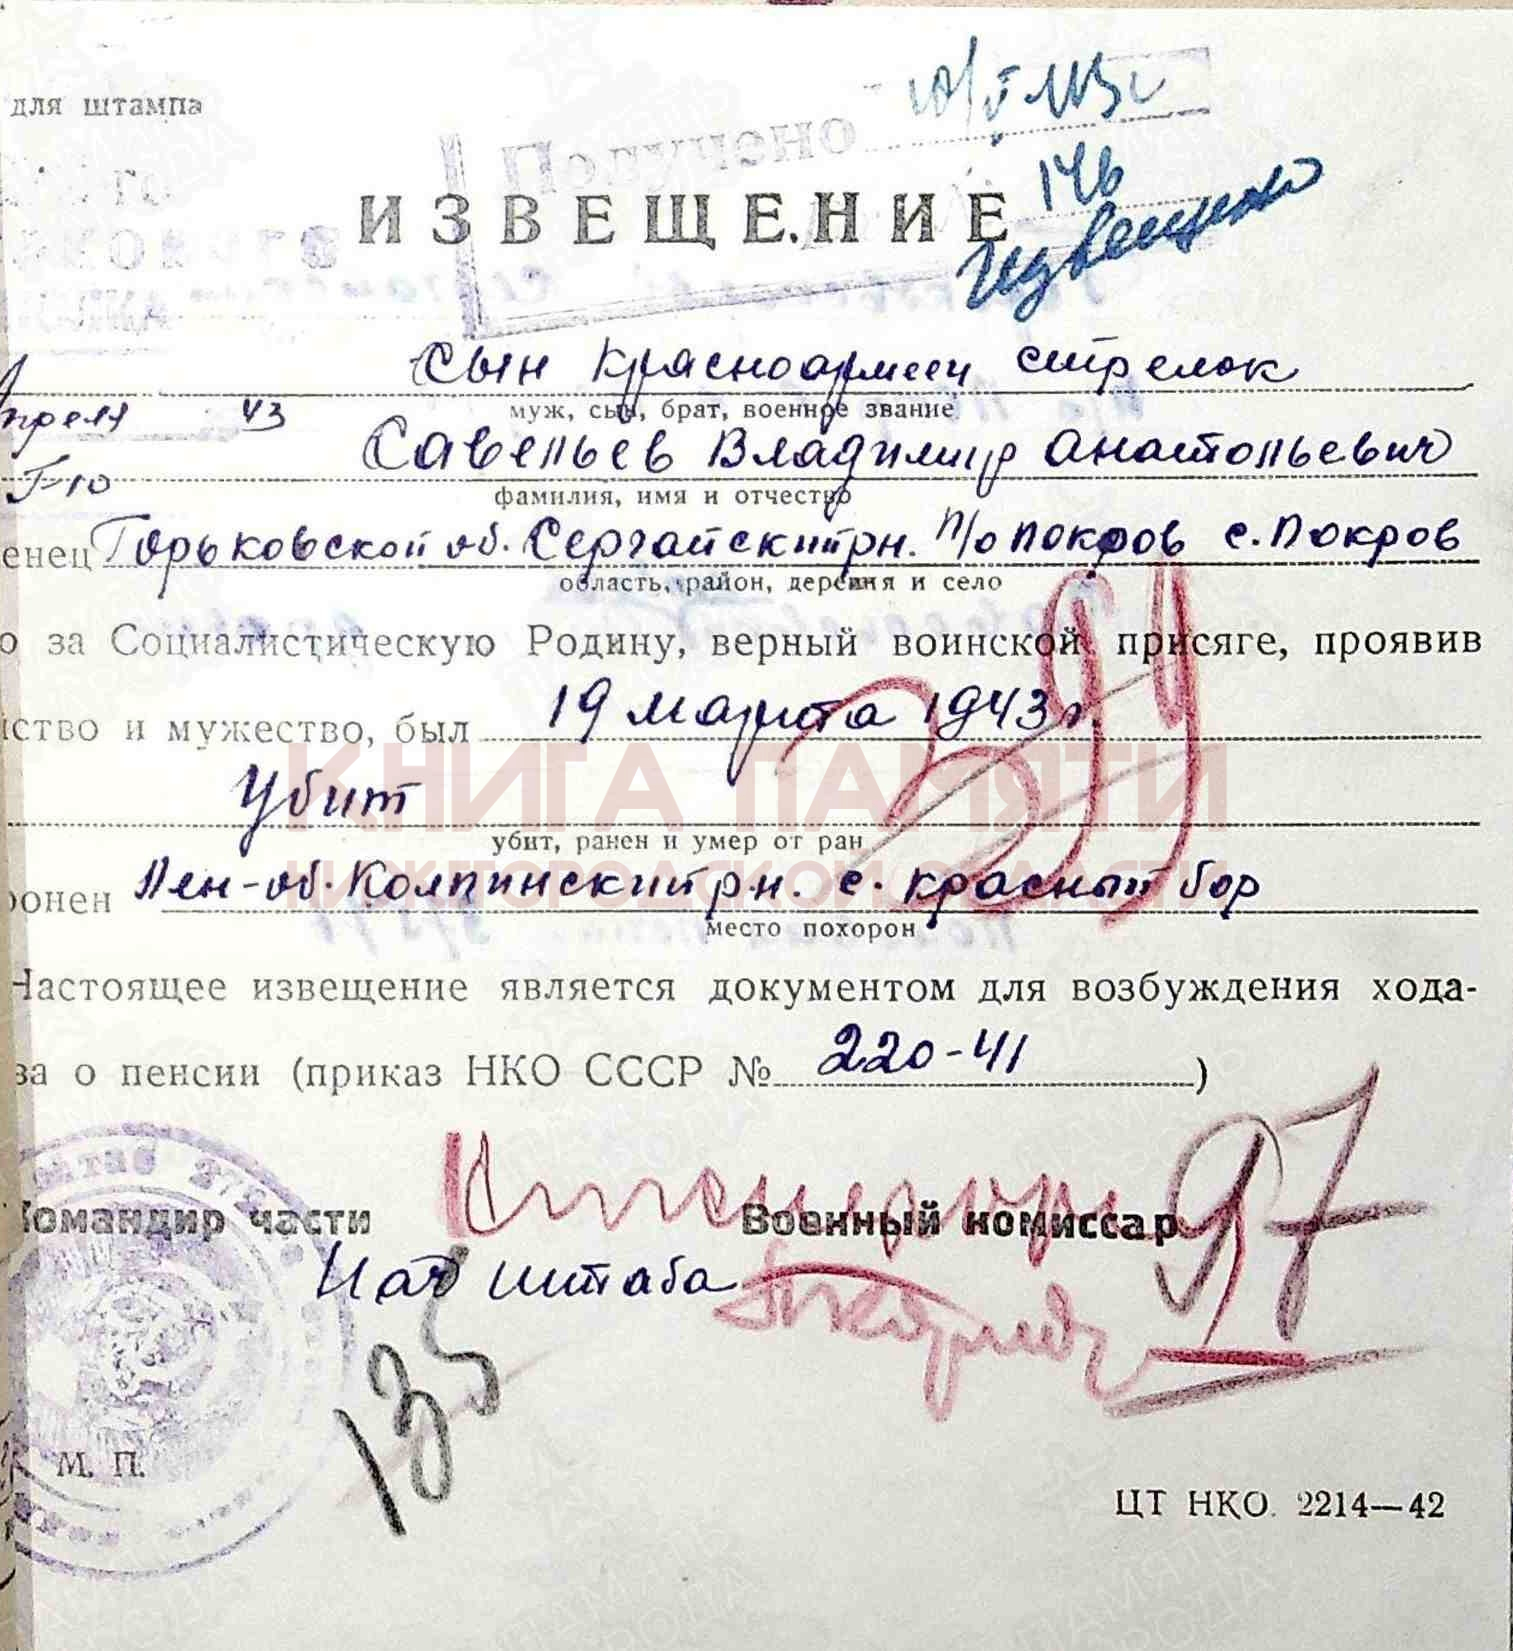 для штампа
Получено
ИЗВЕЩЕНИЕ
146
Извещено
Сын Красноармеец стрелок
муж, сын, брат, военное звание
преля 43
Савельев Владимир Анатольевич
фамилия, имя и отчество
енец Горьковской об. Сергатский рн. п/о покров с. Покров
область, район, деревня и село
о за Социалистическую Родину, верный воинской присяге, проявив
йство и мужество, был 19 марта 1943 г.
КНИГА ПАМЯТИ
Убит
убит, ранен и умер от ран
НИЖЕГОРОДСКОЙ ОБЛАСТИ
ронен Лен-об. Колпинский р.н. с. красный бор
место похорон
Настоящее извещение является документом для возбуждения хода-
ва о пенсии (приказ НКО СССР № 220-41)
Командир части Военный комиссар
97
Нач штаба
135
М. П.
ЦТ НКО. 2214—42